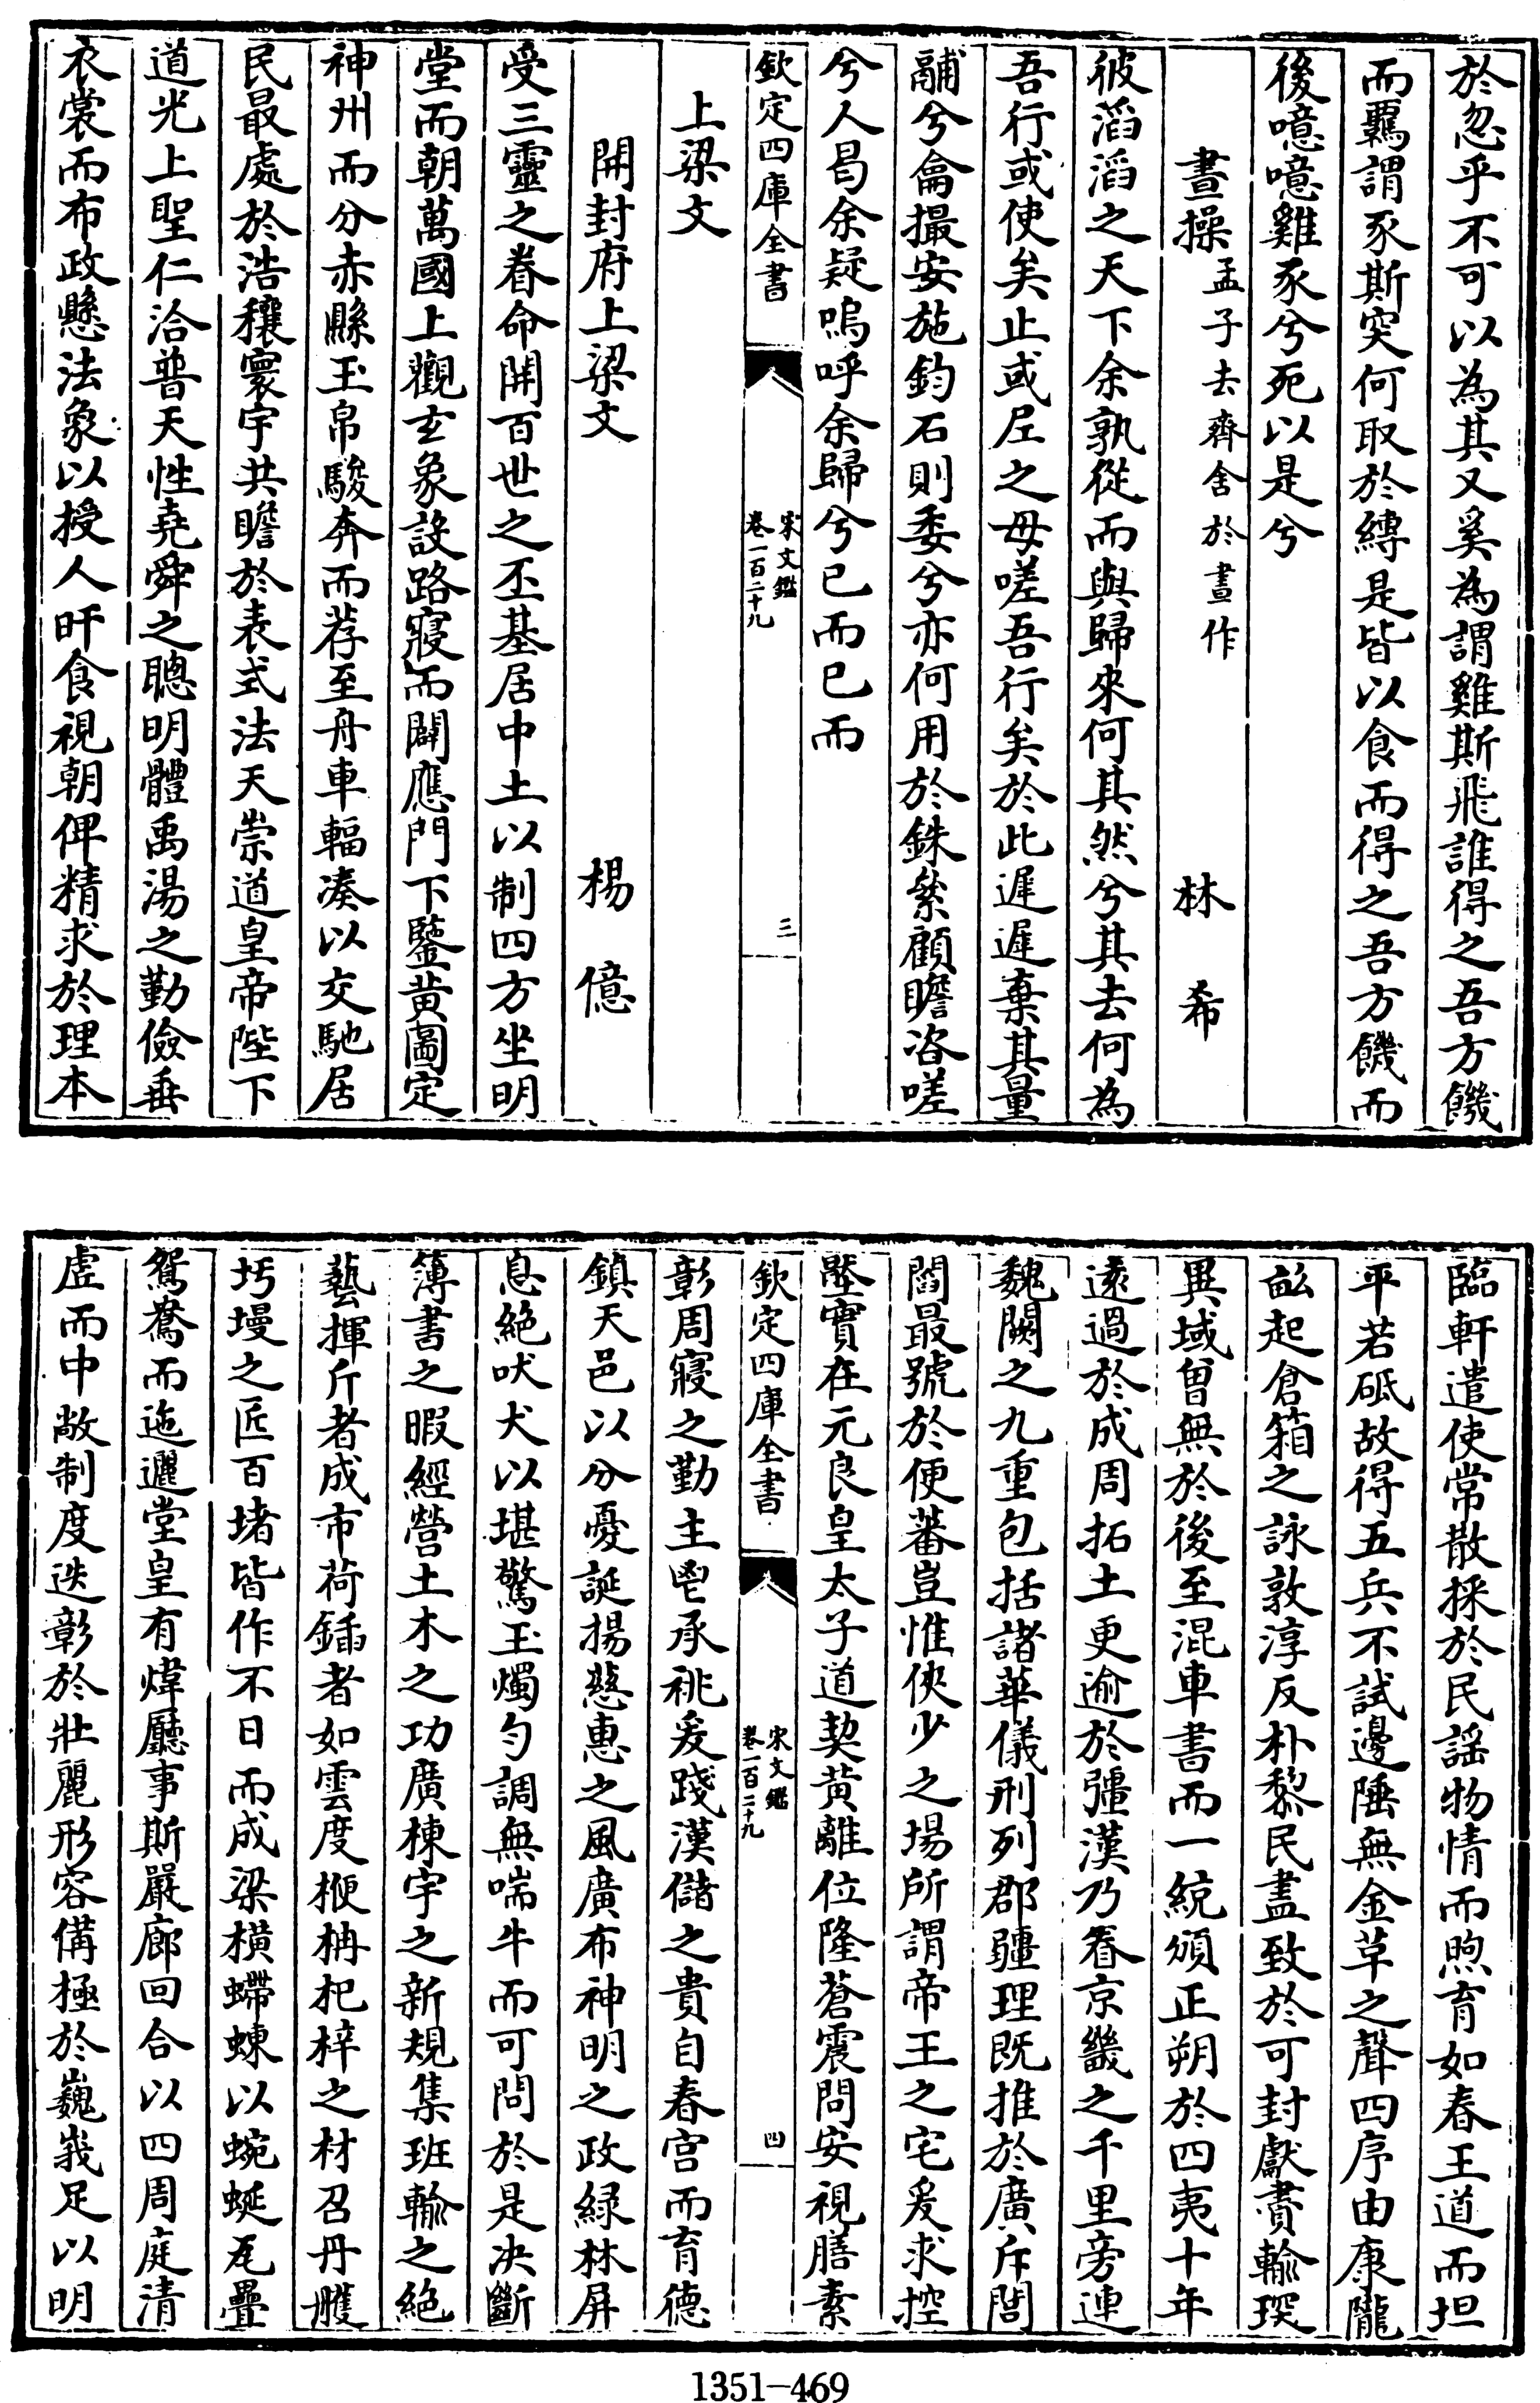 於忽乎不可以為其又奚為謂雞斯飛誰得之吾方饑
而羈謂豕斯突何取於縛是皆以食而得之吾方饑而
後噫噫雞豕兮死以是兮
晝操孟子去齊舍於晝作 林希
彼滔滔之天下余孰從而與歸來何其然兮其去何為
吾行或使矣止或𡰥之毋嗟吾行矣於此遲遲棄其量
鬴兮龠撮安施鈞石則委兮亦何用於銖絫顧瞻咨嗟
兮人曷余疑嗚呼余歸兮已而已而
欽定四庫全書 宋文鑑 卷一百二十九 三
上梁文
開封府上梁文 楊億
受三靈之眷命開百世之丕基居中土以制四方坐明
堂而朝萬國上觀玄象設路寢而闢應門下鑒黄圖定
神州而分赤縣玉帛駿奔而荐至舟車輻湊以交馳居
民最處於浩穰寰宇共瞻於表式法天崇道皇帝陛下
道光上聖仁洽普天性堯舜之聰明體禹湯之勤儉垂
衣裳而布政懸法象以授人旰食視朝俾精求於理本
臨軒遣使常散採於民謡物情而煦育如春王道而坦
平若砥故得五兵不試邊陲無金革之聲四序由康隴
畝起倉箱之詠敦淳反朴黎民盡致於可封獻賮輸琛
異域曽無於後至混車書而一統頒正朔於四夷十年
逺過於成周拓土更逾於彊漢乃眷京畿之千里旁連
魏闕之九重包括諸華儀刑列郡疆理既推於廣斥閭
閻最號於便蕃豈惟俠少之塲所謂帝王之宅爰求控
壓實在元良皇太子道契黄離位隆蒼震問安視膳素
欽定四庫全書 宋文鑑 卷一百二十九 四
彰周寢之勤主鬯承祧爰踐漢儲之貴自春宫而育德
鎮天邑以分憂誕揚慈惠之風廣布神明之政緑林屏
息絶吠犬以堪驚玉燭匀調無喘牛而可問於是决斷
簿書之暇經營土木之功廣棟宇之新規集班輸之絶
藝揮斤者成市荷鍤者如雲度楩枏杞梓之材召丹雘
圬墁之匠百堵皆作不日而成梁橫螮蝀以蜿蜒瓦疊
鴛鴦而迤邐堂皇有煒廳事斯嚴廊回合以四周庭清
虛而中敞制度迭彰於壯麗形容備極於巍峩足以明
1351-469